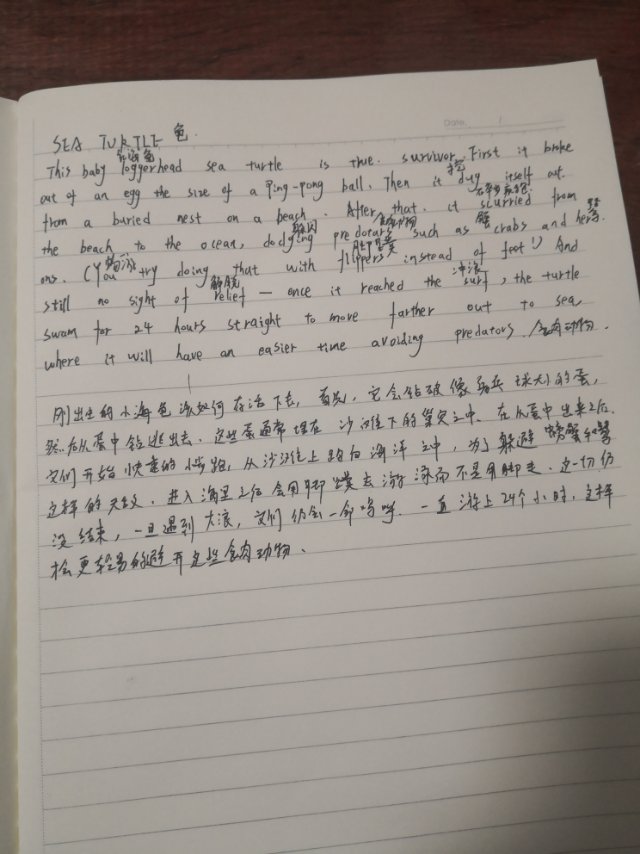 Date. /
SEA TURTLE 龟.
海龟
This baby loggerhead sea turtle is true. survivor. First it broke
挖
out of an egg the size of a Ping-pong ball, Then it dug itself out.
from a buried nest on a beach. After that. it scurried from
躲闪 食肉动物 蟹
the beach to the ocean, dodging predotors such as crabs and hers
ons. (You try doing that with flippers instead of feet!) And
解脱 冲浪
still no sight of relief — once it reached the surf, the turtle
swam for 24 hours straight to move farther out to sea,
where it will have an easier time avoiding predators. 食肉动物.
刚出生的小海龟该如何存活下去, 首先, 它会钻破像乒乓球大的蛋,
然后从蛋中钻逃出去. 这些蛋通常埋在沙滩下的巢穴之中. 在从蛋中出来之后
它们开始快速的小步跑, 从沙滩上跑向海洋之中, 为了躲避螃蟹和鹭
这样的天敌. 进入海里之后会用脚蹼去游泳而不是用脚走. 这一切仍
没结束, 一旦遇到大浪, 它们仍会一命呜呼. 一直游上24个小时, 这样
会更轻易的避开这些食肉动物.